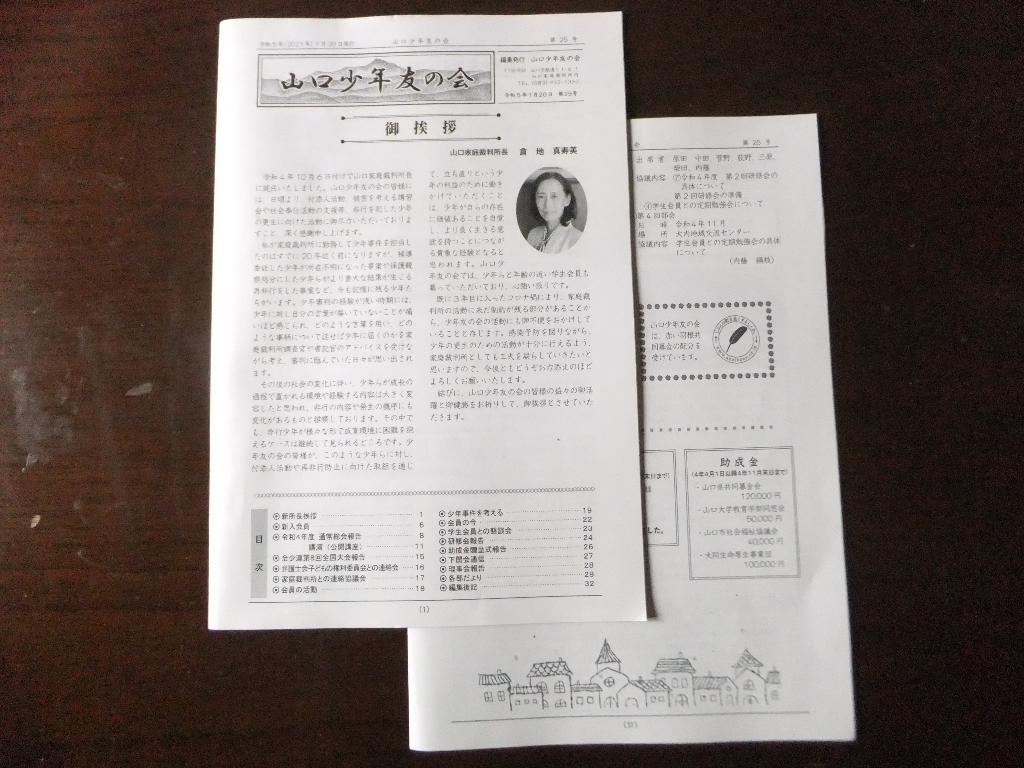 山口少年友の会
第 25 号
山口少年友の会
編集発行 山口少年友の会
令和5年1月20日 第25号
御挨拶
山口家庭裁判所長 倉地 真寿美
令和4年10月6日付けで山口家庭裁判所長
に就任いたしました。山口少年友の会の皆様に
は、日頃より、付添人活動、被害を考える講習
会や社会奉仕活動の支援等、非行を犯した少年
の更生に向けた活動に御尽力いただいておりま
すこと、深く感謝申し上げます。
私が家庭裁判所に勤務して少年事件を担当し
たのはすでに20年近く前になりますが、補導
委託した少年が所在不明になった事案や保護観
察処分にした少年らがより重大な結果が生じる
再非行をした事案など、今も記憶に残る少年た
ちがいます。少年審判の経験が浅い時期には、
少年に対し自分の言葉が届いていないことが痛
いほど感じられ、どのような言葉を用い、どの
ような事柄について話せば少年に届くのかを家
庭裁判所調査官や書記官のアドバイスを受けな
がら考え、審判に臨んでいた日々が思い出され
ます。
その後の社会の変化に伴い、少年らが成長の
過程で置かれる環境や経験する内容は大きく変
容したと思われ、非行の内容や発生の機序にも
変化があるものと推察しております。その中で
も、非行少年が様々な形で成育環境に困難を抱
えるケースは継続して見られるところです。少
年友の会の皆様が、このような少年らに対し、
付添人活動や再非行防止に向けた取組を通じ
て、立ち直りという少
年の利益のために働き
かけていただくこと
は、少年が自らの存在
に価値あることを自覚
し、より良く生きる意
欲を持つことにつなが
る貴重な経験となると
思われます。山口少
年友の会では、少年らと年齢の近い学生会員も
募っていただいており、心強い限りです。
既に3年目に入ったコロナ禍により、家庭裁
判所の活動に未だ制約が残る部分があることか
ら、少年友の会の活動にも御不便をおかけして
いることと存じます。感染予防を図りながら、
少年の更生のための活動が十分に行えるよう、
家庭裁判所としても工夫を凝らしていきたいと
思いますので、今後ともどうぞお力添えのほど
よろしくお願いいたします。
結びに、山口少年友の会の皆様の益々の御活
躍と御健勝をお祈りして、御挨拶とさせていた
だきます。
目次
新所長挨拶 1
新入会員 6
令和4年度 通常総会報告 8
講演(公開講座) 11
全少連第8回全国大会報告 15
弁護士会子どもの権利委員会との連絡会 16
家庭裁判所との連絡協議会 17
会員の活動 18
少年事件を考える 19
会員の今 22
学生会員との懇談会 23
研修会報告 24
助成金贈呈式報告 26
下関会通信 27
理事会報告 28
各部だより 29
編集後記 32
(1)
第 25 号
出席者 原田 中田、菅野、荻野、三原、
柴田、内藤
協議内容 ⑦令和4年度 第2回研修会の
具体について
第2回研修会の準備
④学生会員との定期勉強会について
第4回部会
日時 令和4年11月
場所 大内地域交流センター
協議内容 学生会員との定期勉強会の具体
について
山口少年友の会
は、赤い羽根共
同募金会の配分を
受けています。
助成金
(4年4月1日以降4年11月末日まで)
・山口県共同募金会
120,000円
・山口大学教育学部同窓会
50,000円
・山口市社会福祉協議会
40,000円
・大同生命厚生事業団
100,000円